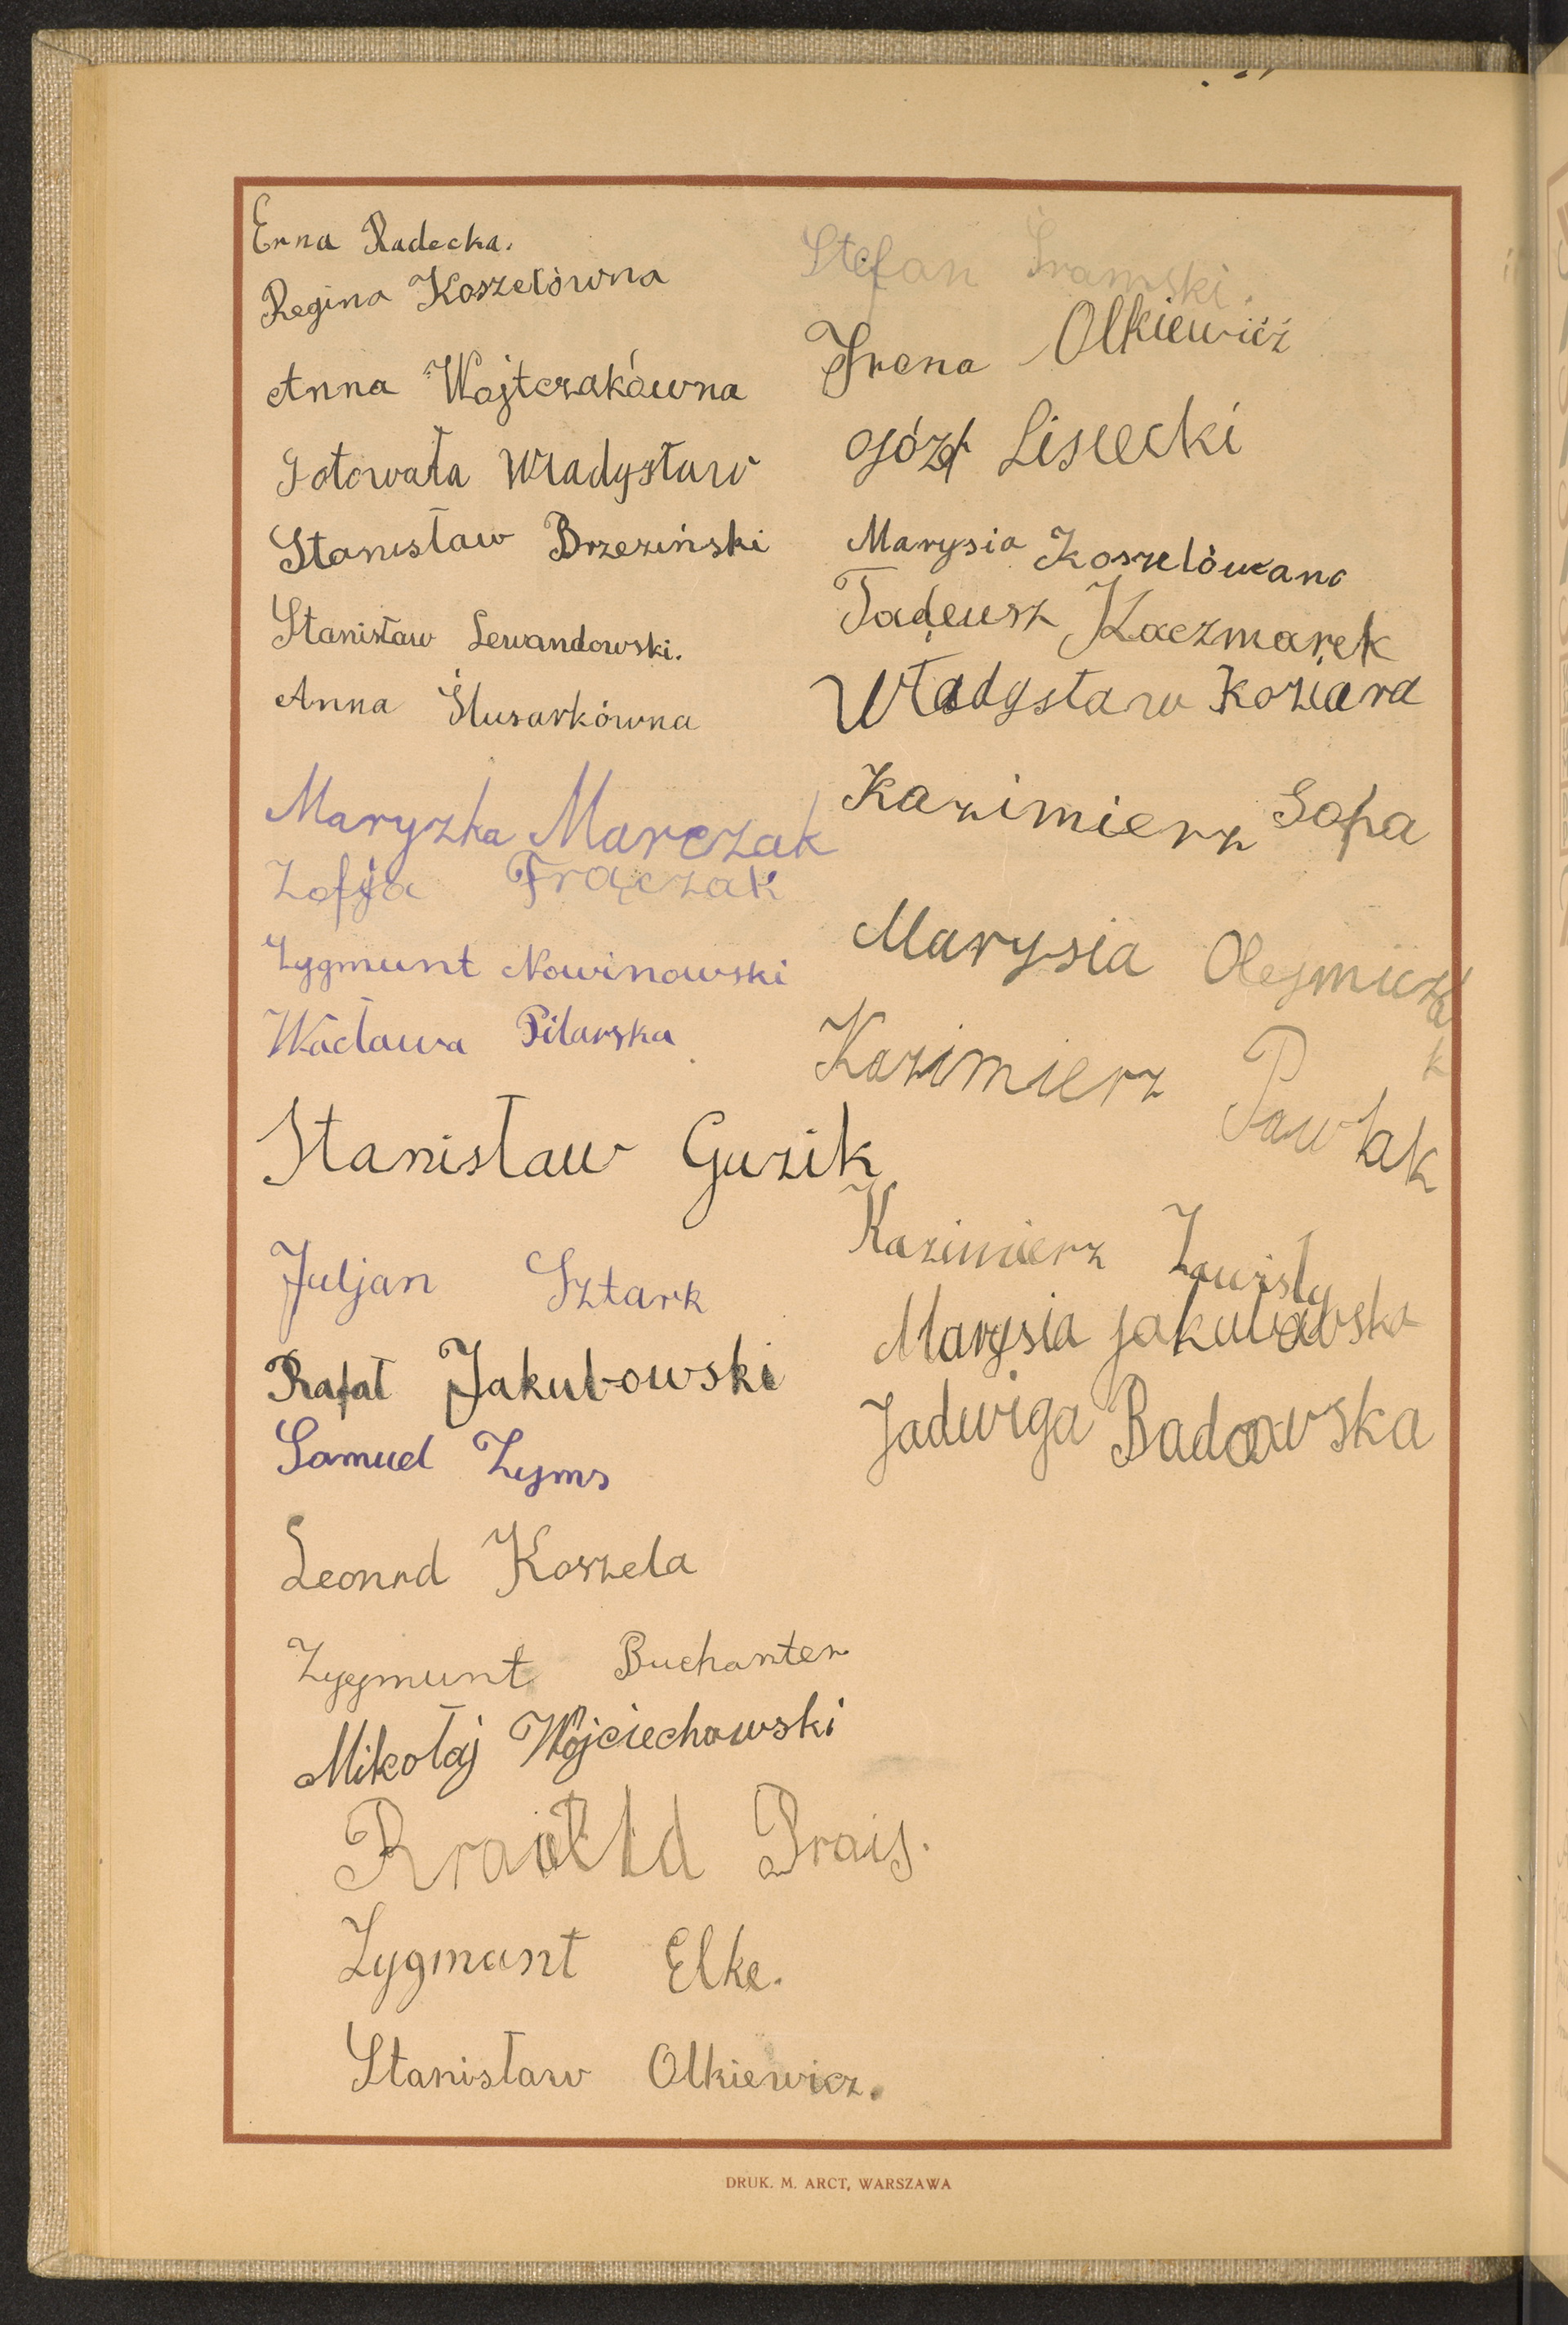 Erna Radecka.
Regina Koszelówna
Anna Wojtczakówna
Gotowała Władysław
Stanisław Brzeziński
Stanisław Lewandowski.
Anna Ślusarkówna
Maryzka Marczak
Zofja Frączak
Zygmunt Nowinowski
Wacława Pilarska
Stanisław Guzik
Juljan Sztark
Rafał Jakubowski
Samuel Zyms
Leonrd Koszela
Zygmunt Buchanter
Mikołaj Wojciechowski
Prais.
Zygmunt Elke.
Stanisław Olkiewicz.
Stefan Sramski.
Irena Olkiewicz
Józef Lisiecki
Marysia Koszelówana
Tadeusz Kaczmarek
Władysław Koziara
Kazimierz Sopa
Marysia
Kazimierz Pawlak
Kazimierz
Marysia
Jadwiga Badowska
DRUK. M. ARCT, WARSZAWA